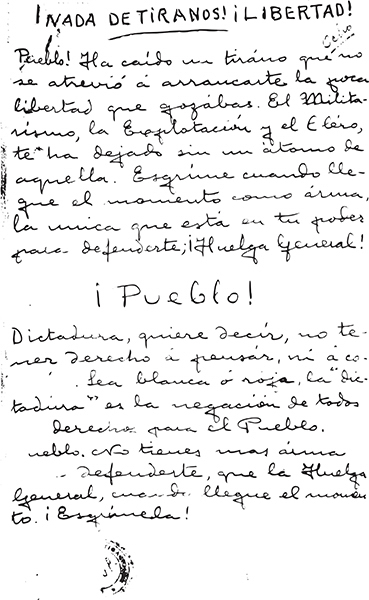 ¡NADA DE TIRANOS! ¡LIBERTAD!
Pueblo! Ha caído un tiráno que no
se atrevió á arrancarte la poca
libertad que gozábas. El Milita-
rísmo, la Explotación y el Cléro,
te ha dejado sin un átomo de
aquella. Esgríme cuando lle-
gue el momento como árma,
la unica que está en tu poder
para defenderte; ¡Huelga General!
¡Pueblo!
Dictadura, quiere decír, no te-
ner derecho á pensár, ni á co-
. Sea blanca ó roja, la "dic-
tadura" es la negación de todos
derechos para el Pueblo.
ueblo. No tienes mas árma
defenderte, que la Huelga
General, cuando llegue el momen-
to. ¡Esgrímela!